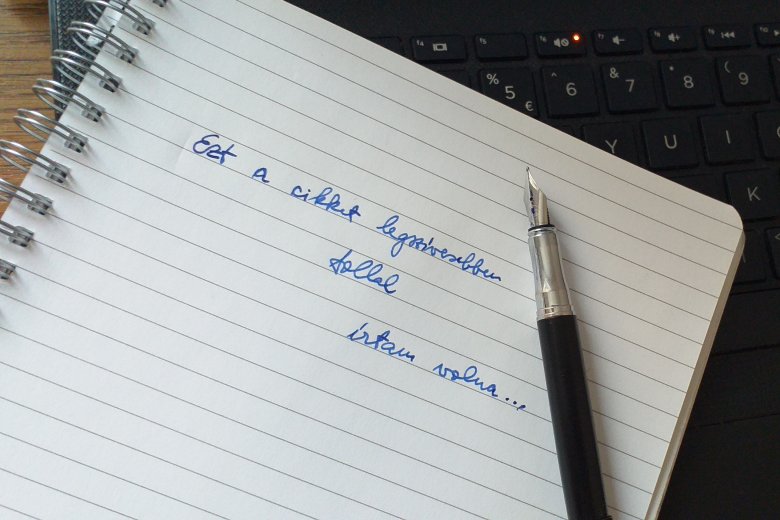 Ezt a cikket legszívesebben
tollal
írtam volna...
F4 F5 F6 F7 F8 F9
% 5 € ^ 6 & 7 * 8 ( 9
Y U I
K